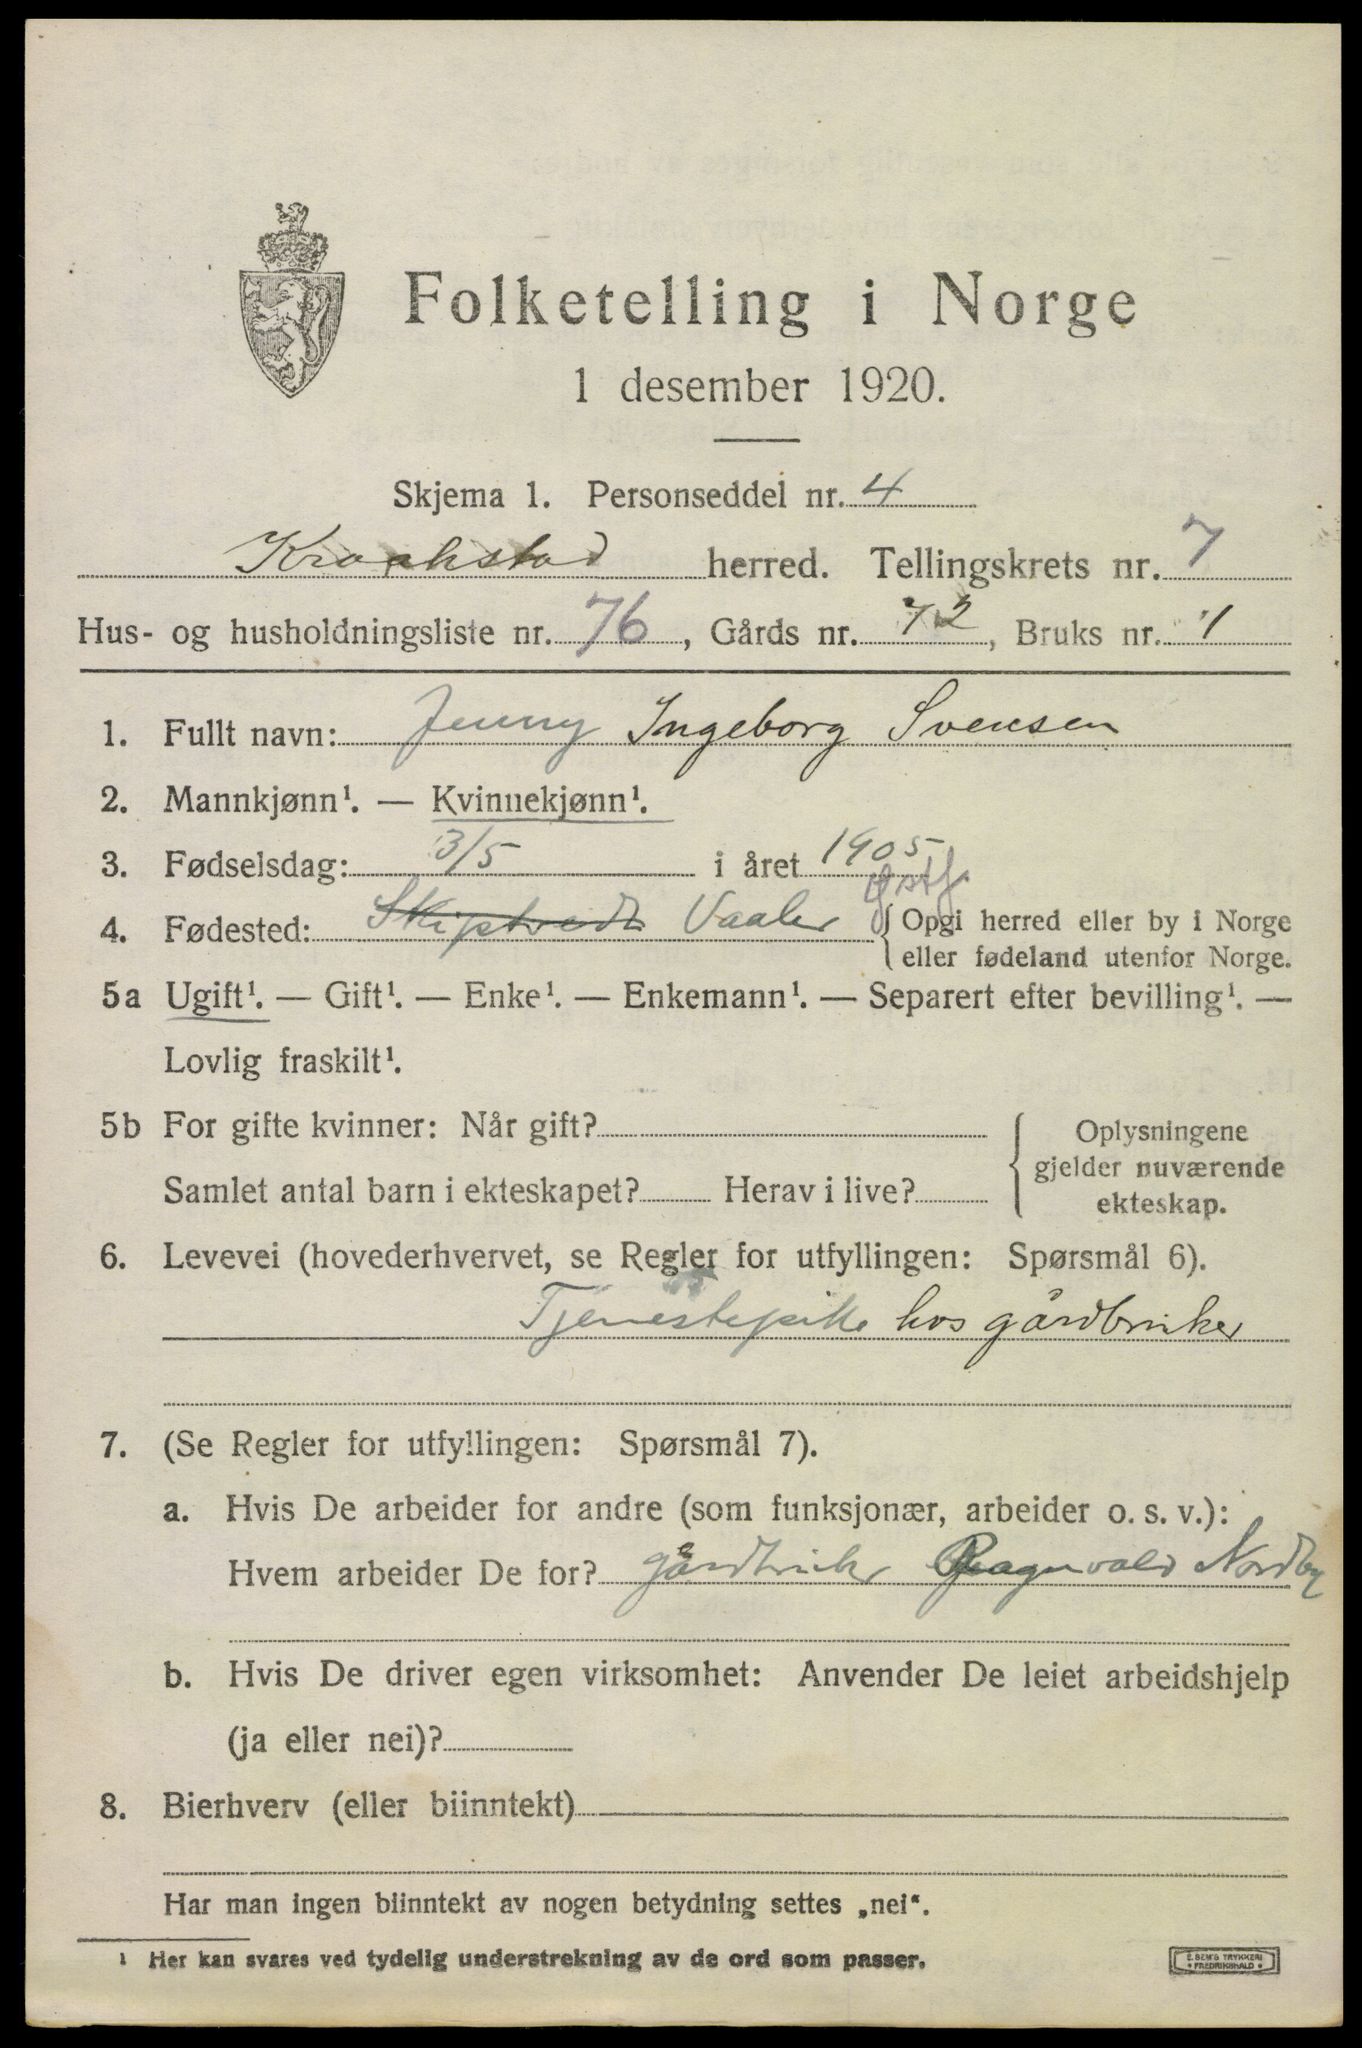 Folketelling i Norge
1 desember 1920.
Skjema 1. Personseddel nr. 4
Kraakstad herred. Tellingskrets nr. 7
Hus- og husholdningsliste nr. 76, Gårds nr. 72, Bruks nr. 1
1. Fullt navn: Jenny Ingeborg Svensen
2. Mannkjønn¹. — Kvinnekjønn¹.
3. Fødselsdag: 3/5 i året 1905
Østf.
4. Fødested: Skiptvedt Vaaler { Opgi herred eller by i Norge
eller fødeland utenfor Norge.
5a Ugift¹. — Gift¹. — Enke¹. — Enkemann¹. — Separert efter bevilling¹. —
Lovlig fraskilt¹.
5b For gifte kvinner: Når gift?
Samlet antal barn i ekteskapet? Herav i live?
Oplysningene
gjelder nuværende
ekteskap.
6. Levevei (hovederhvervet, se Regler for utfyllingen: Spørsmål 6).
Tjenestepike hos gårdbruker
7. (Se Regler for utfyllingen: Spørsmål 7).
a. Hvis De arbeider for andre (som funksjonær, arbeider o. s. v.):
Hvem arbeider De for? gårdbruker Ragnvald Nordby
b. Hvis De driver egen virksomhet: Anvender De leiet arbeidshjelp
(ja eller nei)?
8. Bierhverv (eller biinntekt)
Har man ingen biinntekt av nogen betydning settes „nei“.
¹ Her kan svares ved tydelig understrekning av de ord som passer.
E. SEM'S TRYKKERI
• FREDRIKSHALD •